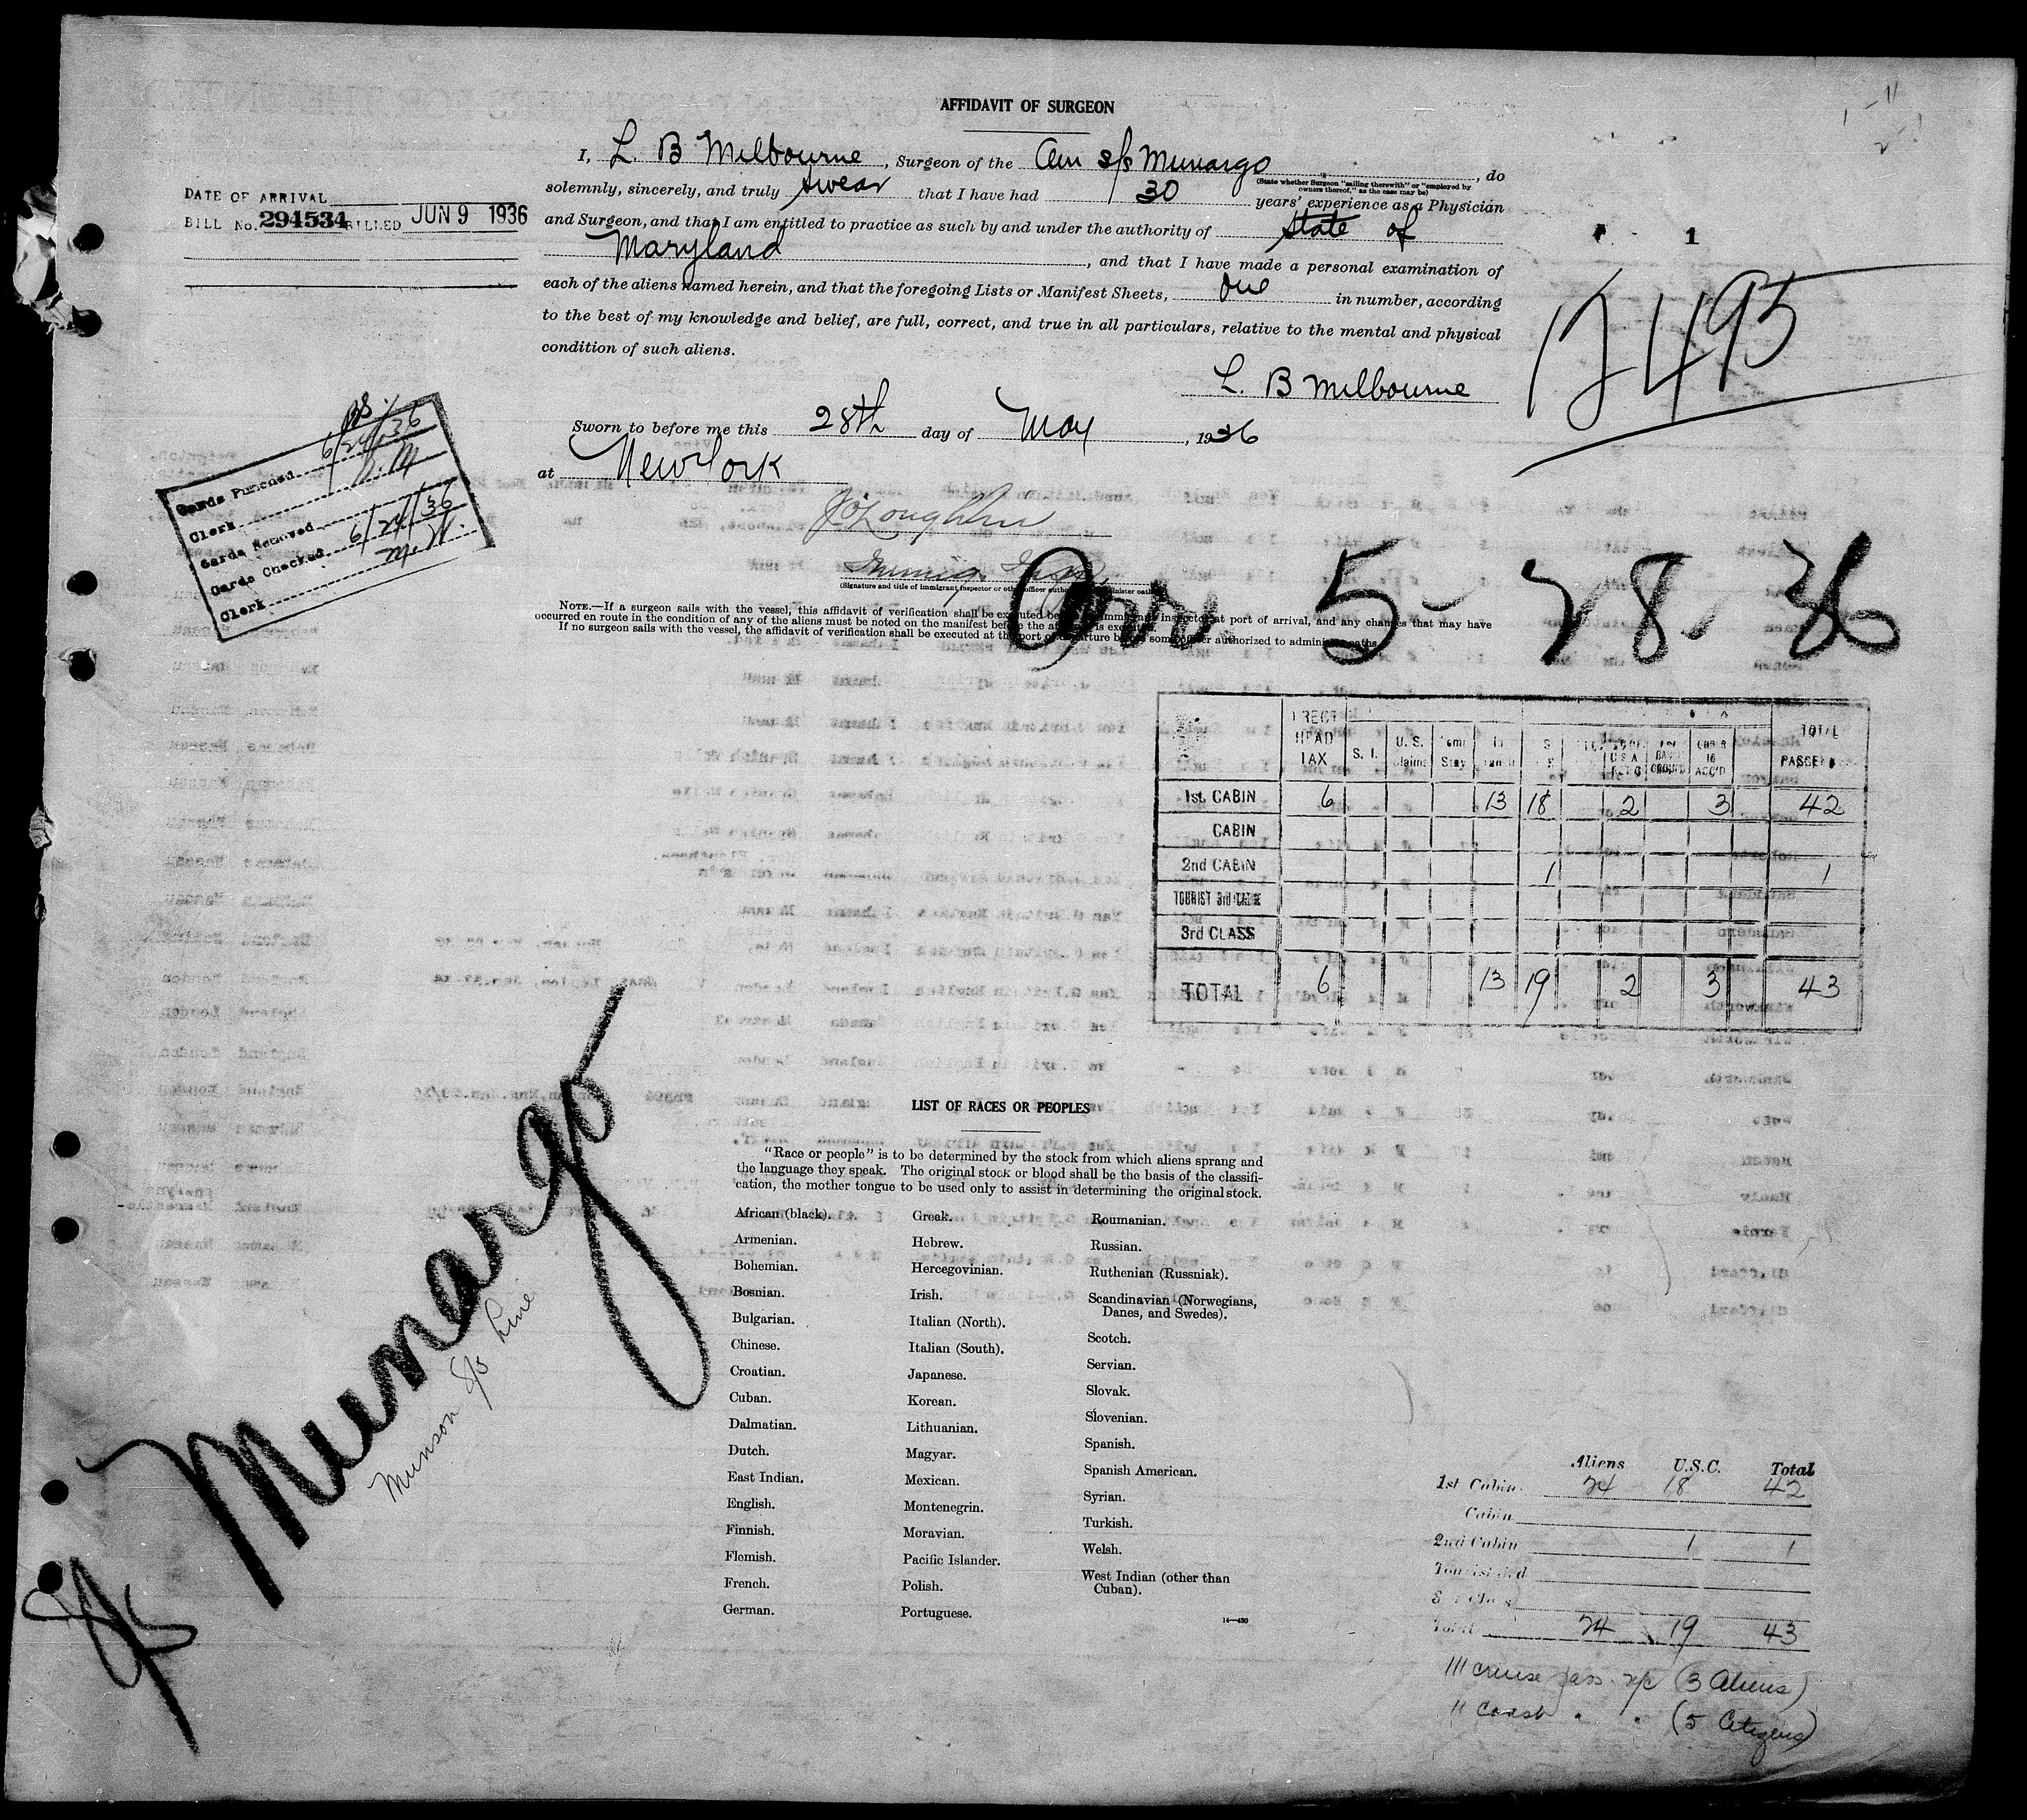 AFFIDAVIT OF SURGEON
I, L. B Milbourne, Surgeon of the Am s/s Munargo, do
(State whether Surgeon "sailing therewith" or "employed by
owners thereof," as the case may be)
solemnly, sincerely, and truly swear that I have had 30 years' experience as a Physician
and Surgeon, and that I am entitled to practice as such by and under the authority of State of
Maryland, and that I have made a personal examination of
each of the aliens named herein, and that the foregoing Lists or Manifest Sheets, One in number, according
to the best of my knowledge and belief, are full, correct, and true in all particulars, relative to the mental and physical
condition of such aliens.
L. B Milbourne
Sworn to before me this 28th day of May, 1936
at New York
J O'Loughlin
Immig. Insp.
(Signature and title of immigrant inspector or other officer authorized to administer oaths)
NOTE.—If a surgeon sails with the vessel, this affidavit of verification shall be executed before an immigrant inspector at port of arrival, and any changes that may have
occurred en route in the condition of any of the aliens must be noted on the manifest before the affidavit is executed.
If no surgeon sails with the vessel, the affidavit of verification shall be executed at the port of departure before some officer authorized to administer oaths.
DATE OF ARRIVAL
BILL No. 294534 BILLED JUN 9 1936
1
12495
Cards Punched 6/24/36
Clerk
Cards Removed
Cards Checked 6/24/36
Clerk M. W.
Arr 5-28-36
DIRECT HEAD TAX S. I. U.S. Claims Temp Stay In Transit UNDER 16 ACC'D TOTAL PASSEN
1st. CABIN 6 13 18 2 3 42
CABIN
2nd CABIN 1 1
TOURIST 3rd CABIN
3rd CLASS
TOTAL 6 13 19 2 3 43
S/S Munargo
Munson S/S Line
LIST OF RACES OR PEOPLES
"Race or people" is to be determined by the stock from which aliens sprang and
the language they speak. The original stock or blood shall be the basis of the classifi-
cation, the mother tongue to be used only to assist in determining the original stock.
African (black).
Armenian.
Bohemian.
Bosnian.
Bulgarian.
Chinese.
Croatian.
Cuban.
Dalmatian.
Dutch.
East Indian.
English.
Finnish.
Flemish.
French.
German.
Greek.
Hebrew.
Hercegovinian.
Irish.
Italian (North).
Italian (South).
Japanese.
Korean.
Lithuanian.
Magyar.
Mexican.
Montenegrin.
Moravian.
Pacific Islander.
Polish.
Portuguese.
Roumanian.
Russian.
Ruthenian (Russniak).
Scandinavian (Norwegians,
Danes, and Swedes).
Scotch.
Servian.
Slovak.
Slovenian.
Spanish.
Spanish American.
Syrian.
Turkish.
Welsh.
West Indian (other than
Cuban).
14—430
Aliens U.S.C. Total
1st Cabin 24 18 42
Cabin
2nd Cabin 1 1
Tourist 3rd
3rd Class
Total 24 19 43
111 cruise pass. (3 Aliens)
11 Coast " " (5 Citizens)